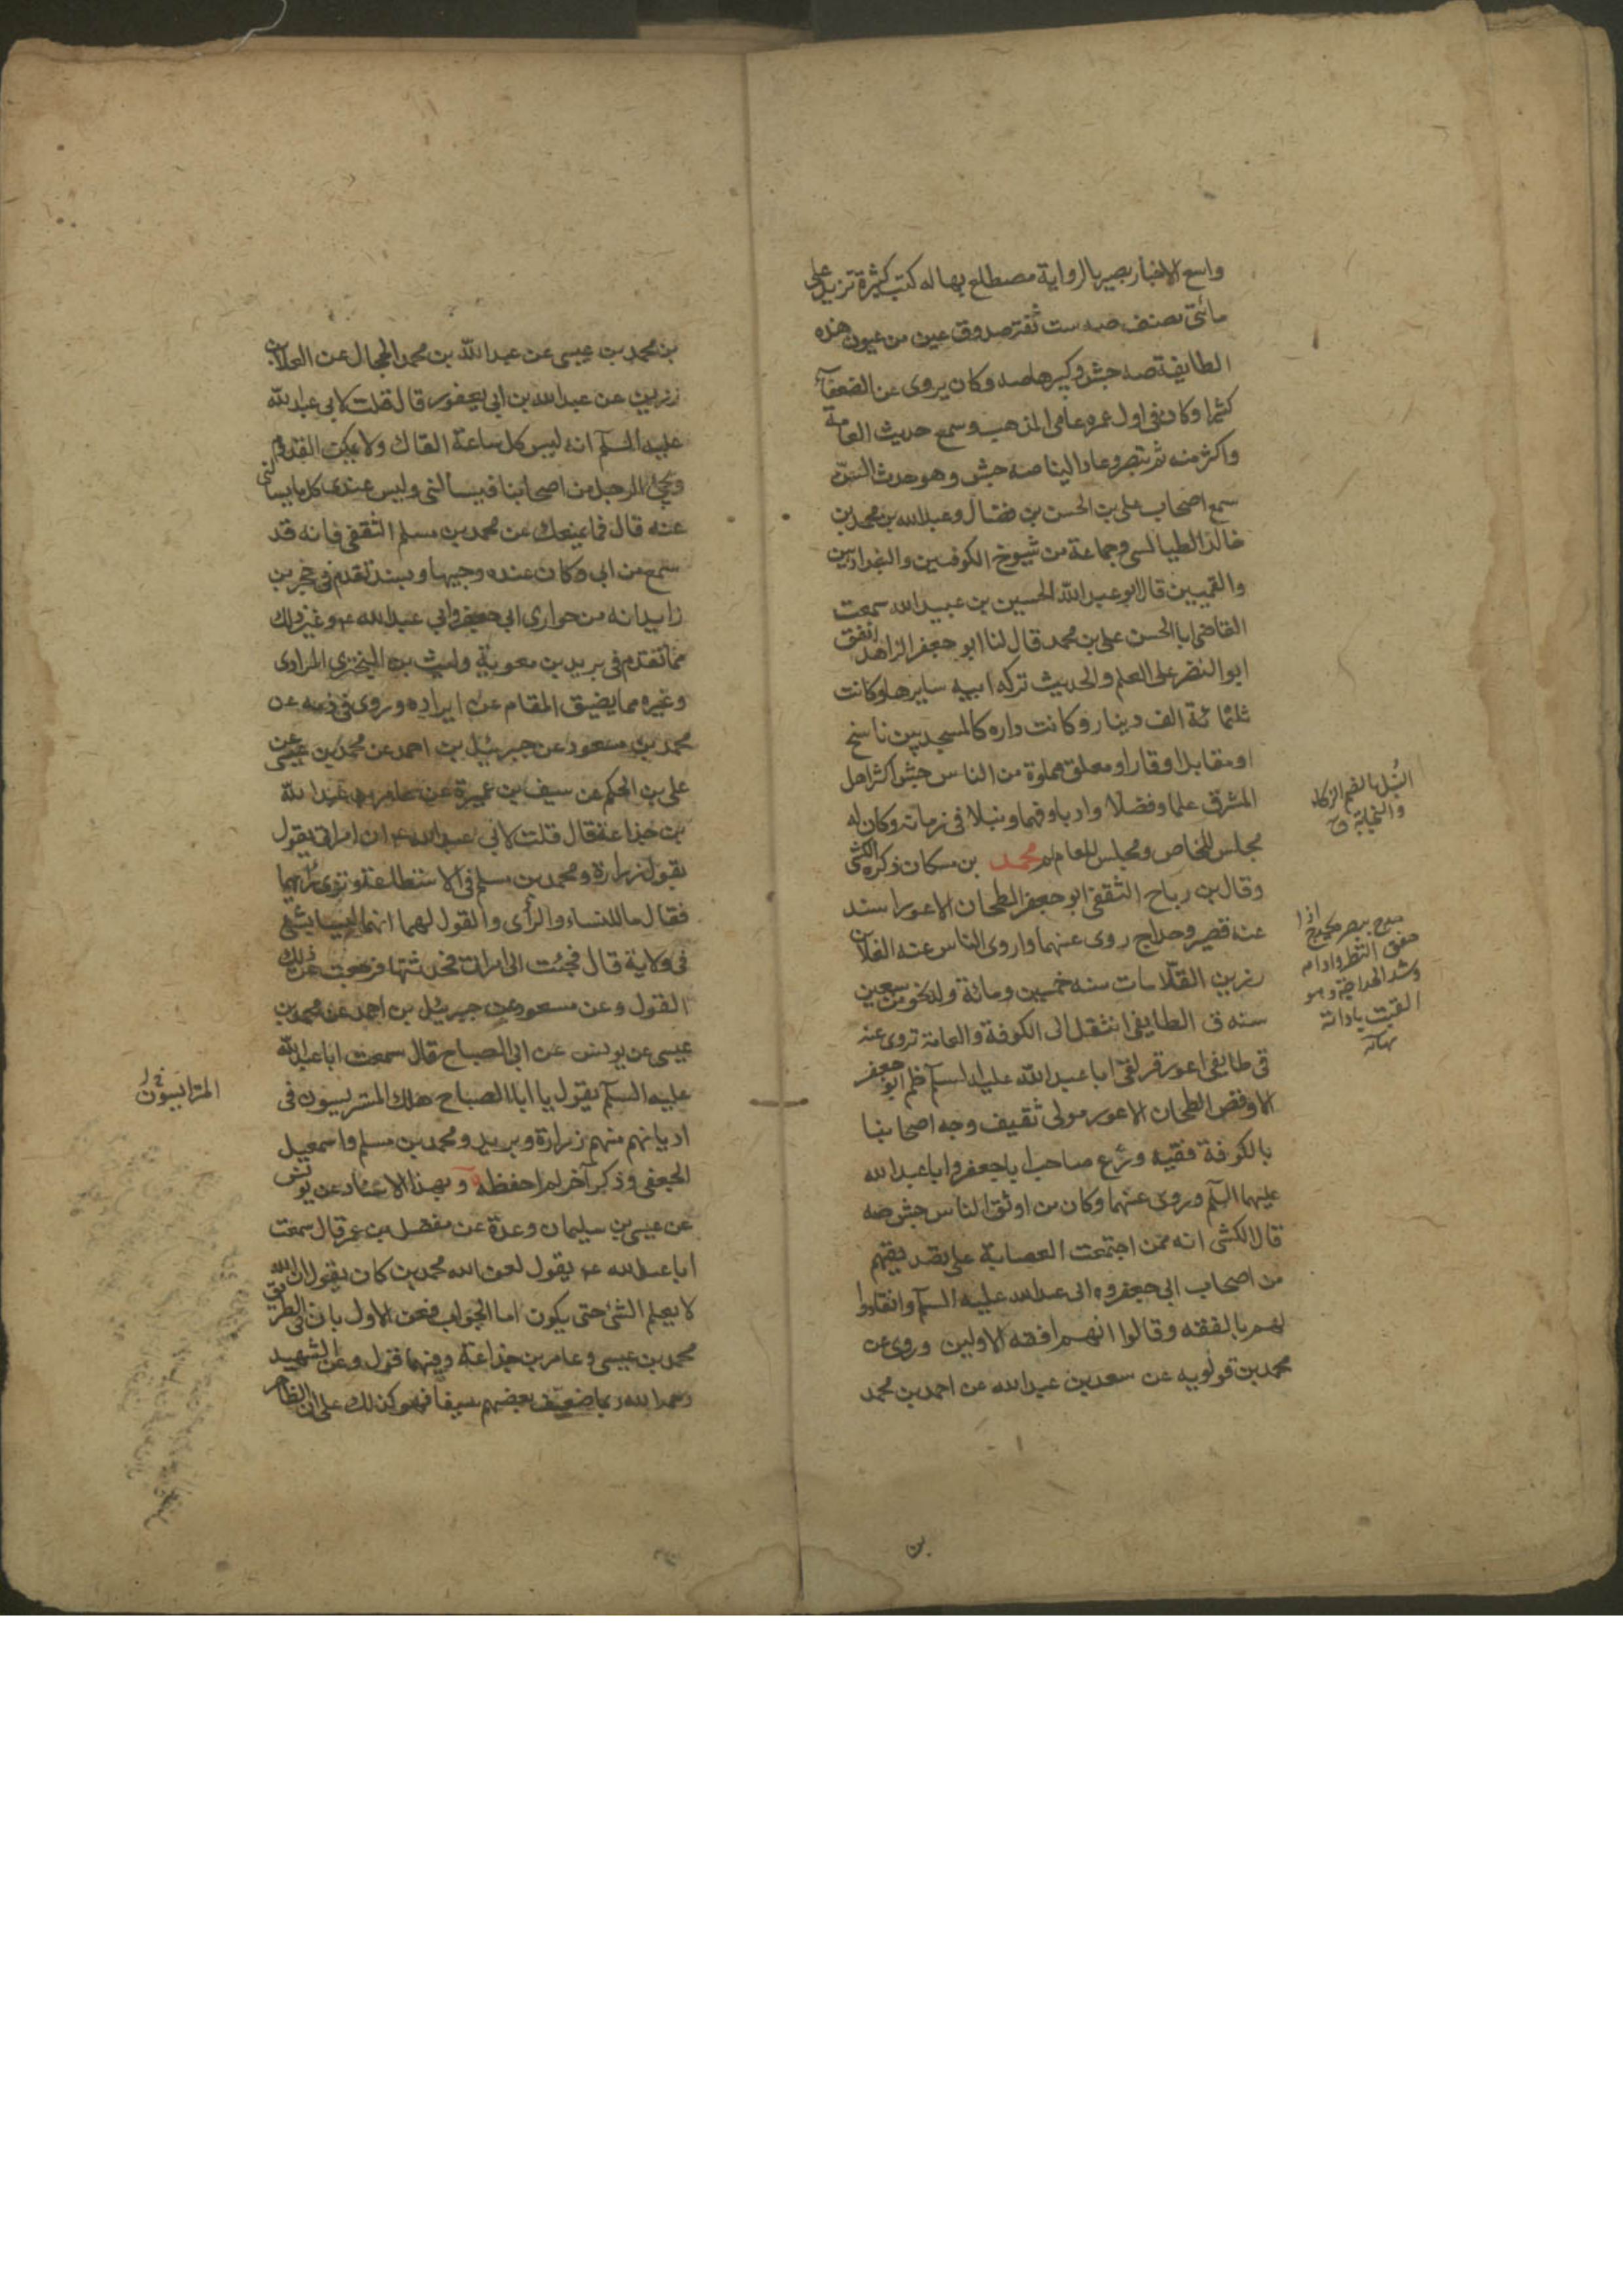 واسع الاخبار بصير بالرواية مضطلع بها له كتب كثيرة تزيد على
مائتى مصنف صه ست ثقة صدوق عين من عيون هذه
الطايفة صه جش وكبيرها صه وكان يروى عن الضعفآء
كثيرا وكان فى اول عمره عامى المذهب وسمع حديث العامة
واكثر منه ثم تبصر وعاد الينا صه جش وهو حدث السن
سمع اصحاب على بن الحسن بن فضال وعبد الله بن محمد بن
خالد الطيالسى وجماعة من شيوخ الكوفيين والبغداديين
والقميين قال ابو عبد الله الحسين بن عبيد الله سمعت
القاضى ابا الحسن على بن محمد قال لنا ابو جعفر الزاهد انفق
ابو النضر على العلم والحديث تركه ابيه سايرها وكانت
ثلثمائة الف دينار وكانت داره كالمسجد بين ناسخ
او مقابل او قار او معلق مملوة من الناس جش اكثر اهل
المشرق علما وفضلا وادبا وفهما ونبلا فى زمانه وكان له
مجلس للخاص ومجلس للعام لم محمد بن مسكان ذكره الكشى
وقال بن رباح الثقفى ابو جعفر الطحان الاعور اسند
عنه قصير وحداج روى عنهما واروى الناس عنه العلا بن
رزين القلا مات سنه خمسين ومائة وله نحو من سبعين
سنه ق الطايفى انتقل الى الكوفة والعامة تروى عنه
قى طايفى اعور قر لقى ابا عبد الله عليه السلم ظم ابو جعفر
الاوقص الطحان الاعور مولى ثقيف وجه اصحابنا
بالكوفة فقيه ورع صاحب ابا جعفر وابا عبد الله
عليهما السلم وروى عنهما وكان من اوثق الناس جش صه
قال الكشى انه ممن اجتمعت العصابة على تصديقهم
من اصحاب ابى جعفر وابى عبد الله عليه السلم وانقادوا
لهم بالفقه وقالوا انهم افقه الاولين وروى عن
محمد بن قولويه عن سعد بن عبد الله عن احمد بن محمد
النبل بالضم الذكاء
والنجابة ق
بن
بن محمد بن عيسى عن عبد الله بن محمد الحجال عن العلا بن
رزين عن عبد الله بن ابى يعفور قال قلت لابى عبد الله
عليه السلم انه ليس كل ساعة القاك ولا يمكن القدوم
ويجئ الرجل من اصحابنا فيسألنى وليس عندى كل ما يسالنى
عنه قال فما يمنعك عن محمد بن مسلم الثقفى فانه قد
سمع من ابى وكان عنده وجيها وبسند تقدم فى حجر بن
زايد انه من حوارى ابى جعفر وابى عبد الله ع وغير ذلك
مما تقدم فى بريد بن معوية وليث بن البخترى المرادى
وغيره مما يضيق المقام عن ايراده وروى فى ذمه عن
محمد بن مسعود عن جبرئيل بن احمد عن محمد بن عيسى عن
على بن الحكم عن سيف بن عميرة عن عامر بن عبد الله
بن جذاعة قال قلت لابى عبد الله ع ان امراتى يقول
بقول زرارة ومحمد بن مسلم فى الاستطاعة وترى رأيهما
فقال ما للنساء والرأى والقول لهما انهما ليسا بشئ
فى ولاية قال فجئت الى امراتى فحدثتها فرجعت عن ذلك
القول وعن مسعود عن جبرئيل بن احمد عن محمد بن
عيسى عن يونس عن ابى الصباح قال سمعت ابا عبد الله
عليه السلم يقول يا ابا الصباح هلك المتريسون فى
اديانهم منهم زرارة وبريد ومحمد بن مسلم واسمعيل
الجعفى وذكر آخر لم احفظه وبهذا الاسناد عن يونس
عن عيسى بن سليمان وعدة عن مفضل بن عمر قال سمعت
ابا عبد الله ع يقول لعن الله محمد بن كان يقول ان الله
لا يعلم الشئ حتى يكون اما الجواب فعن الاول بان فى الطريق
محمد بن عيسى وعامر بن جذاعة وفيهما قول وعن الشهيد
رحمه الله ربما ضعيف بعضهم سيفا فهو كذلك على ان الظاهر
المترايسون خ ل